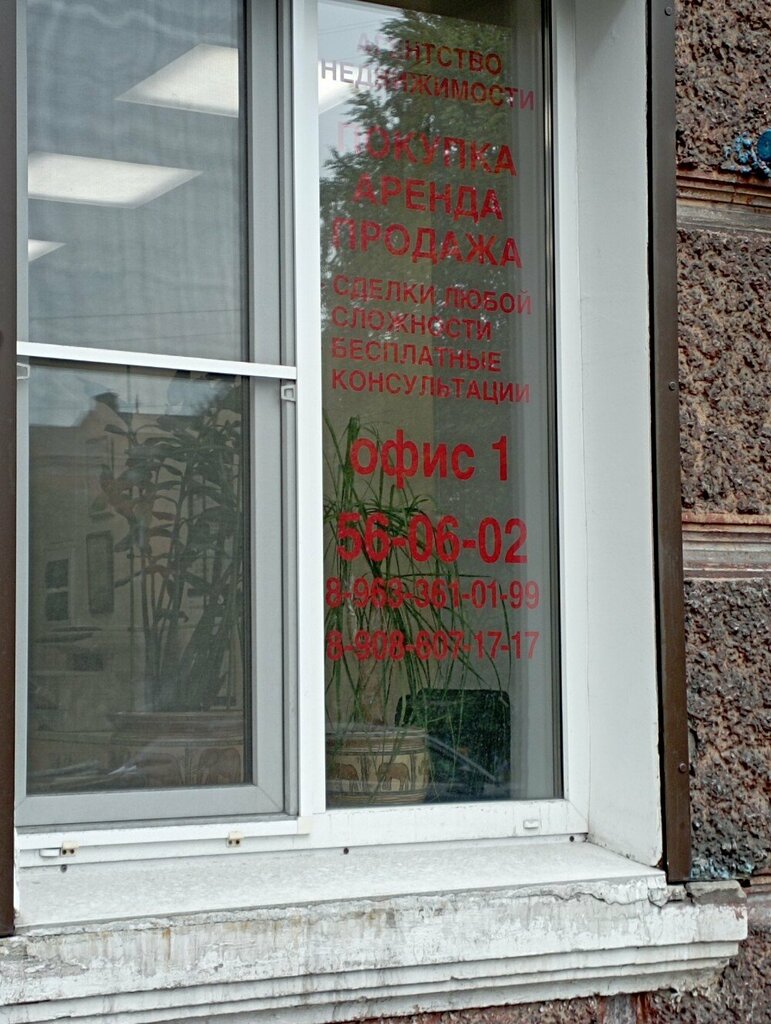 АГЕНТСТВО
НЕДВИЖИМОСТИ
ПОКУПКА
АРЕНДА
ПРОДАЖА
СДЕЛКИ ЛЮБОЙ
СЛОЖНОСТИ
БЕСПЛАТНЫЕ
КОНСУЛЬТАЦИИ
офис 1
56-06-02
8-963-361-01-99
8-908-607-17-17